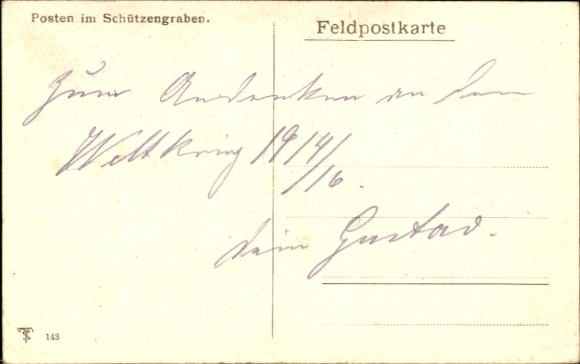 Posten im Schützengraben.
Feldpostkarte
Zum Andenken an den
Weltkrieg 1914/
/16.
Dein Gustav.
143